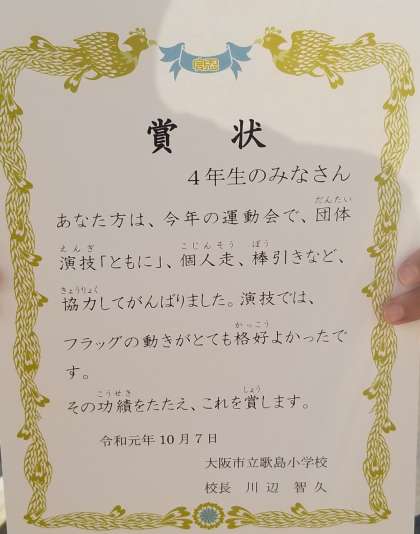 賞状
4年生のみなさん
あなた方は、今年の運動会で、団体
演技「ともに」、個人走、棒引きなど、
協力してがんばりました。演技では、
フラッグの動きがとても格好よかったで
す。
その功績をたたえ、これを賞します。
令和元年10月7日
大阪市立歌島小学校
校長 川辺 智久